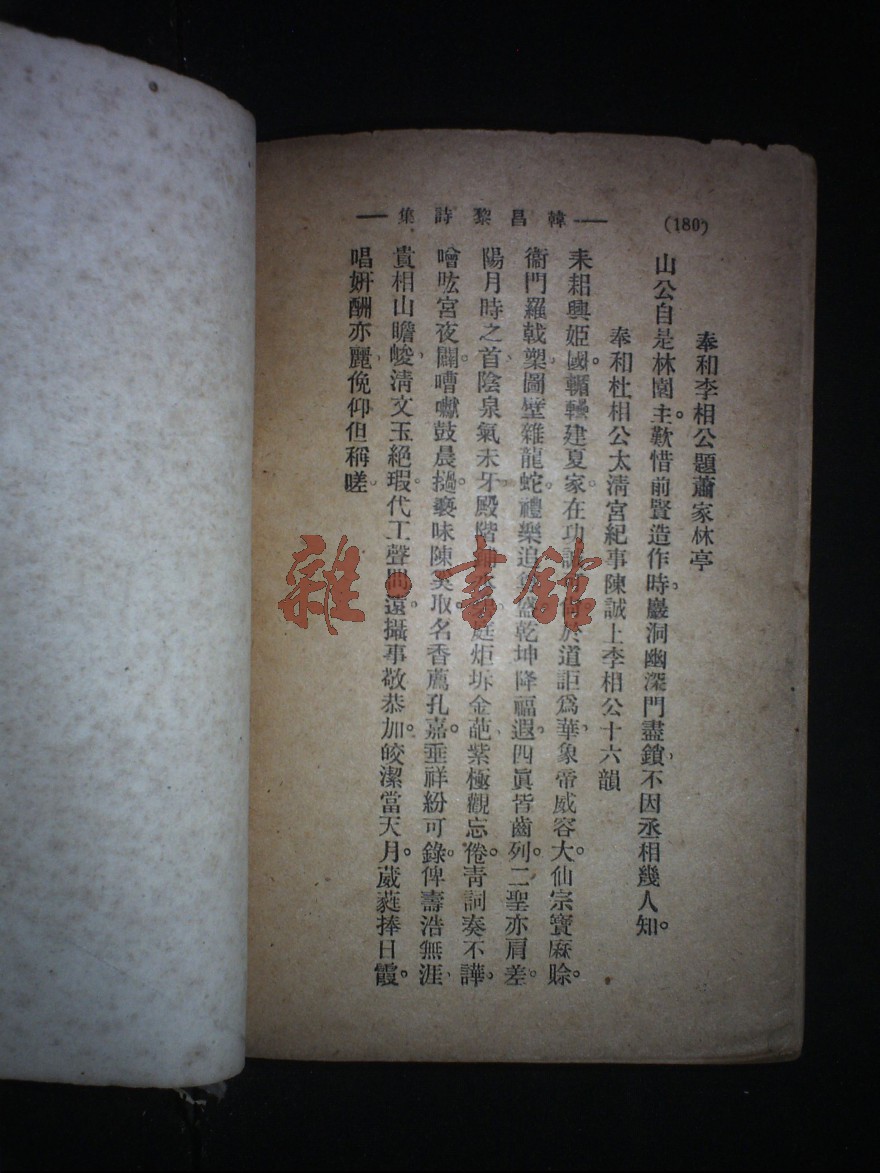 (180)
—韓昌黎詩集—
奉和李相公題蕭家林亭
山公自是林園主。歎惜前賢造作時。巖洞幽深門盡鎖、不因丞相幾人知。
奉和杜相公太清宮紀事陳誠上李相公十六韻
耒耜興姬國。輴欙建夏家在功誠 於道詎爲華象帝威容大。仙宗寶麻賒。
衞門羅戟槊圖壁雜龍蛇。禮樂追 盛乾坤降福遐四眞皆齒列。二聖亦肩差。
陽月時之首、陰泉氣未牙。殿階 庭炬坼金葩。紫極觀忘倦。青詞奏不譁。
噌吰宮夜闢。嘈囐鼓晨撾褻味陳奚取、名香薦孔嘉。垂祥紛可錄。俾壽浩無涯、
貴相山瞻峻、淸文玉絕瑕。代工聲問遠。攝事敬恭加。皎潔當天月。葳蕤捧日霞。
唱妍酬亦麗、俛仰但稱嗟
雜·書館